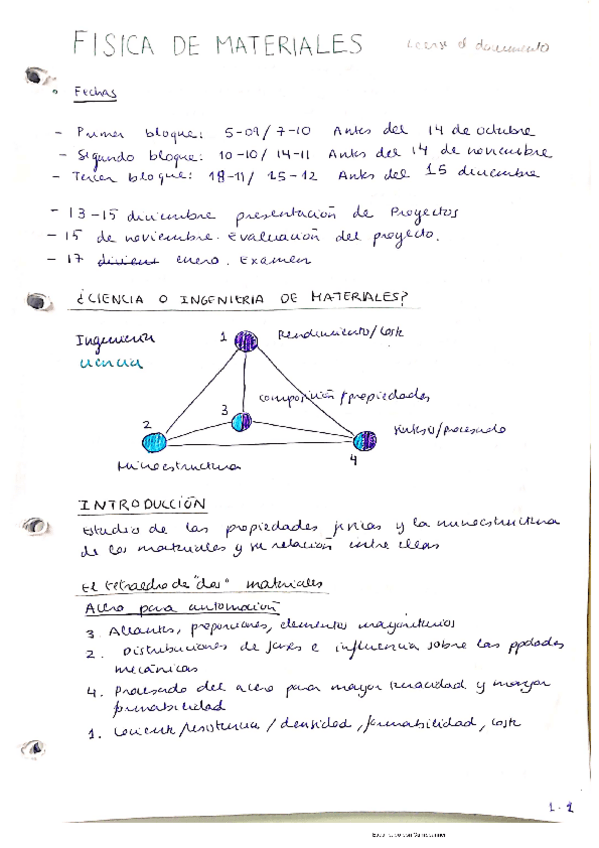 FISICA DE MATERIALES
Leerse el documento
• Fechas
- Primer bloque: 5-09/7-10 Antes del 14 de octubre
- Segundo bloque: 10-10/14-11 Antes del 14 de noviembre
- Tercer bloque: 18-11/15-12 Antes del 15 diciembre
- 13-15 diciembre presentación de Proyectos
- 15 de noviembre. Evaluación del proyecto.
- 17 enero. Examen
¿CIENCIA O INGENIERIA DE MATERIALES?
Ingeniería
ciencia
1 Rendimiento/coste
3 composición/propiedades
2 Microestructura
4 síntesis/procesado
INTRODUCCIÓN
Estudio de las propiedades físicas y la microestructura
de los materiales y su relación entre ellas
El tetraedro de "los" materiales
Acero para automoción
3. Aleantes, proporciones, elementos mayoritarios
2. Distribuciones de fases e influencia sobre las ppdades
mecánicas
4. Procesado del acero para mayor tenacidad y mayor
formabilidad
1. Cociente/resistencia/densidad, formabilidad, coste
1.1